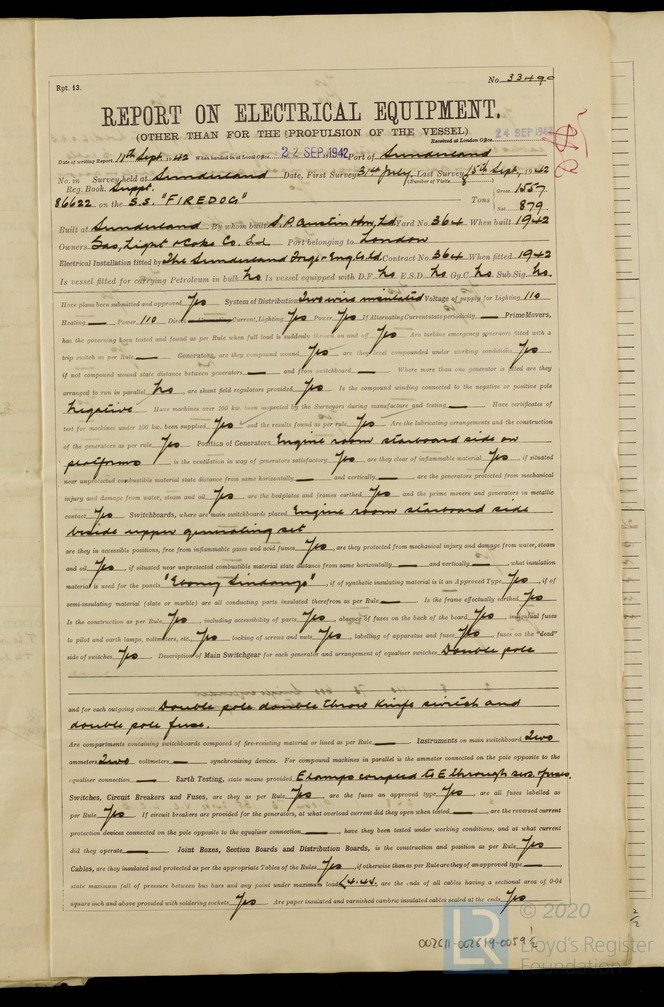 Rpt. 13.
No. 33490
REPORT ON ELECTRICAL EQUIPMENT.
(OTHER THAN FOR THE PROPULSION OF THE VESSEL)
Received at London Office 24 SEP 1942
Date of writing Report 11th Sept. 1942 When handed in at Local Office 22 SEP. 1942 Port of Sunderland
No. in Survey held at Sunderland Date, First Survey 31st July, Last Survey 15th Sept, 1942
Reg. Book. Suppt. (Number of Visits 8)
86622 on the S.S. "FIREDOG" Tons Gross 1557
Net 879
Built at Sunderland By whom built S.P. Austin & Son, Ltd Yard No. 364 When built 1942
Owners Gas, Light & Coke Co. Ltd Port belonging to London
Electrical Installation fitted by The Sunderland Forge & Eng. Co Ltd Contract No. 364 When fitted 1942
Is vessel fitted for carrying Petroleum in bulk No Is vessel equipped with D.F. No E.S.D. No Gy.C. No Sub.Sig. No.
Have plans been submitted and approved Yes System of Distribution Two wire insulated Voltage of supply for Lighting 110
Heating — Power 110 Direct or Alternating Current, Lighting Yes Power Yes If Alternating Current state periodicity — Prime Movers,
has the governing been tested and found as per Rule when full load is suddenly thrown on and off Yes Are turbine emergency governors fitted with a
trip switch as per Rule — Generators, are they compound wound Yes, are they level compounded under working conditions Yes,
if not compound wound state distance between generators — and from switchboard — Where more than one generator is fitted are they
arranged to run in parallel No, are shunt field regulators provided Yes Is the compound winding connected to the negative or positive pole
Negative Have machines over 100 kw. been inspected by the Surveyors during manufacture and testing — Have certificates of
test for machines under 100 kw. been supplied Yes and the results found as per rule Yes Are the lubricating arrangements and the construction
of the generators as per rule Yes Position of Generators Engine room starboard side on
platforms, is the ventilation in way of generators satisfactory Yes, are they clear of inflammable material Yes, if situated
near unprotected combustible material state distance from same horizontally — and vertically —, are the generators protected from mechanical
injury and damage from water, steam and oil Yes, are the bedplates and frames earthed Yes and the prime movers and generators in metallic
contact Yes Switchboards, where are main switchboards placed Engine room starboard side
beside upper generating set
are they in accessible positions, free from inflammable gases and acid fumes Yes, are they protected from mechanical injury and damage from water, steam
and oil Yes, if situated near unprotected combustible material state distance from same horizontally — and vertically —, what insulation
material is used for the panels "Ebony Sindanyo", if of synthetic insulating material is it an Approved Type Yes, if of
semi-insulating material (slate or marble) are all conducting parts insulated therefrom as per Rule — Is the frame effectually earthed Yes
Is the construction as per Rule Yes, including accessibility of parts Yes, absence of fuses on the back of the board Yes, individual fuses
to pilot and earth lamps, voltmeters, etc. Yes, locking of screws and nuts Yes, labelling of apparatus and fuses Yes, fuses on the "dead"
side of switches Yes Description of Main Switchgear for each generator and arrangement of equaliser switches Double pole
and for each outgoing circuit Double pole double throw knife switch and
double pole fuse.
Are compartments containing switchboards composed of fire-resisting material or lined as per Rule — Instruments on main switchboard Two
ammeters Two voltmeters — synchronising devices. For compound machines in parallel is the ammeter connected on the pole opposite to the
equaliser connection — Earth Testing, state means provided E lamps coupled to E through sw. fuses.
Switches, Circuit Breakers and Fuses, are they as per Rule Yes, are the fuses an approved type Yes, are all fuses labelled as
per Rule Yes If circuit breakers are provided for the generators, at what overload current did they open when tested —, are the reversed current
protection devices connected on the pole opposite to the equaliser connection —, have they been tested under working conditions, and at what current
did they operate — Joint Boxes, Section Boards and Distribution Boards, is the construction and position as per Rule Yes
Cables, are they insulated and protected as per the appropriate Tables of the Rules Yes, if otherwise than as per Rule are they of an approved type —
state maximum fall of pressure between bus bars and any point under maximum load 4.4V. are the ends of all cables having a sectional area of 0·04
square inch and above provided with soldering sockets Yes Are paper insulated and varnished cambric insulated cables sealed at the ends Yes
002611-002619-0059 1/2
© 2020
LR
Lloyd's Register
Foundation